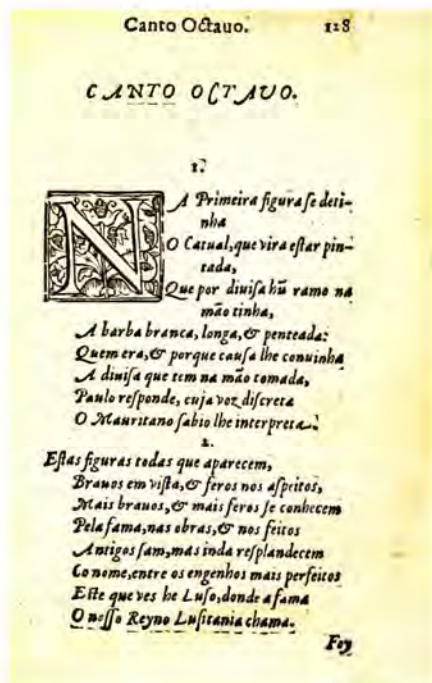 Canto Octauo. 128
CANTO OCTAVO.
1.
NA Primeira figura se deti-
nha
O Catual, que vira estar pin-
tada,
Que por diuisa hũ ramo na
mão tinha,
A barba branca, longa, & penteada:
Quem era, & porque causa lhe conuinha
A diuisa que tem na mão tomada,
Paulo responde, cuja voz discreta
O Mauritano sabio lhe interpreta.
2.
Estas figuras todas que aparecem,
Brauos em vista, & feros nos aspeitos,
Mais brauos, & mais feros se conhecem
Pela fama, nas obras, & nos feitos
Antigos sam, mas inda resplandecem
Co nome, entre os engenhos mais perfeitos
Este que ves he Luso, donde a fama
O nosso Reyno Lusitania chama.
Foy